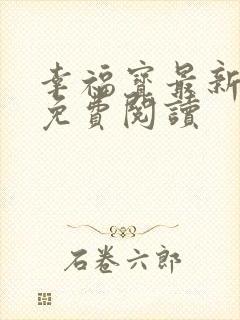 幸福寶最新
免費閱讀
石卷六郎